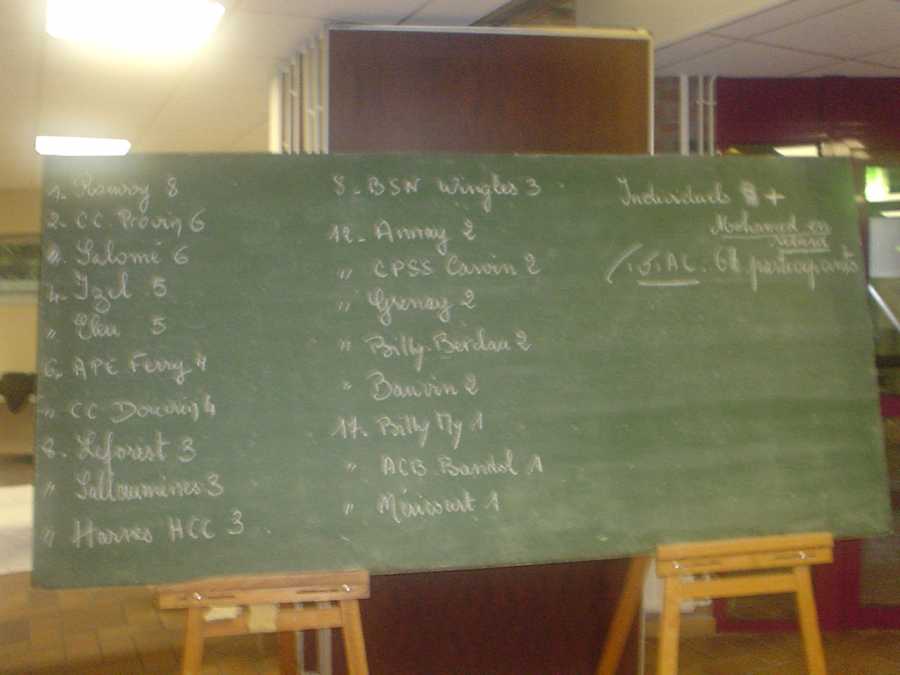 1. Rouvroy 8
2. CC. Provin 6
3. Salomé 6
4. Izel 5
" Leu 5
6. APE Ferry 4
" CC Dourin 4
8. Leforest 3
" Sallaumines 3
" Harnes HCC 3
8. BSN Wingles 3
12. Annay 2
" CPSS Carvin 2
" Grenay 2
" Billy-Berclau 2
" Bauvin 2
17. Billy My 1
" ACB Bandol 1
" Méricourt 1
Individuels +
Mohamed en
retard
AC. participants